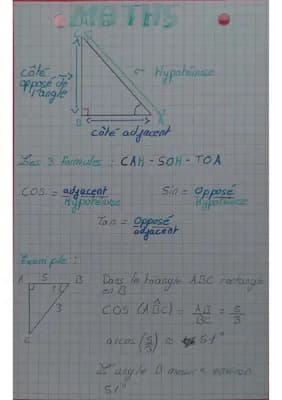 MATHS
côté
opposé de
l'angle
Hypoténuse
B
côté adjacent
Les 3 formules : CAH - SOH - TOA
COS = adjacent / Hypoténuse
Sin = Opposé / Hypoténuse
Tan = Opposé / adjacent
Exemple :
A 5 B
3
C
Dans le triangle ABC rectangle
en B
COS (ABC) = AB / BC = 5 / 3
arcos (5/3) ≈ 51°
L'angle B mesure environ
51°